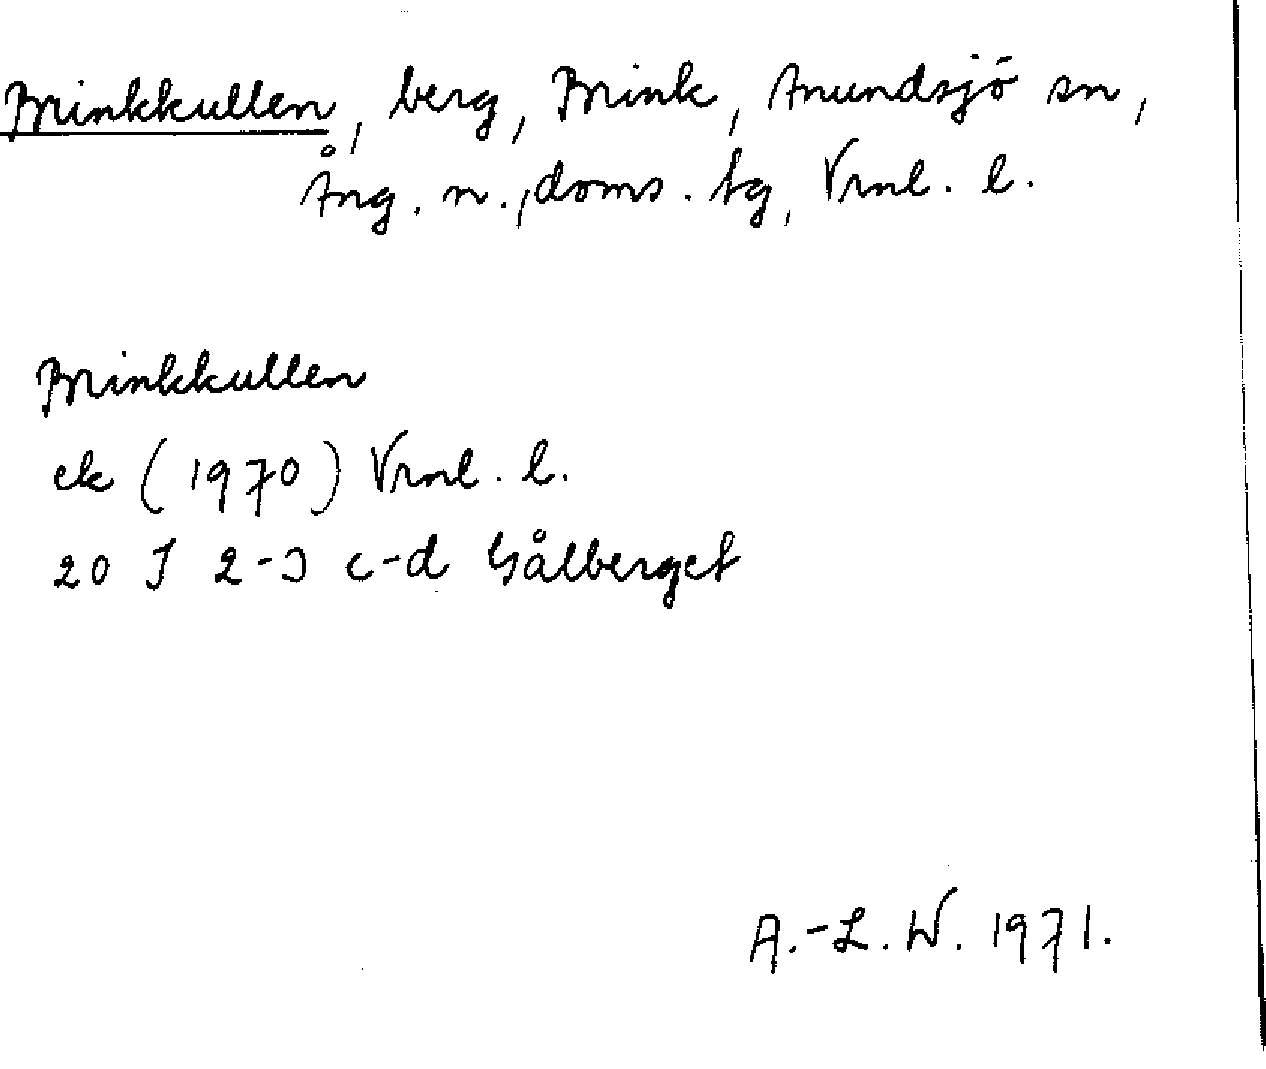 Brinkkullen, berg, Brink, Anundsjö sn,
Ång. n., doms. tg, Vrnl. l.
Brinkkullen
ek (1970) Vrnl. l.
20 J 2-3 c-d Gålberget
A.-L. W. 1971.